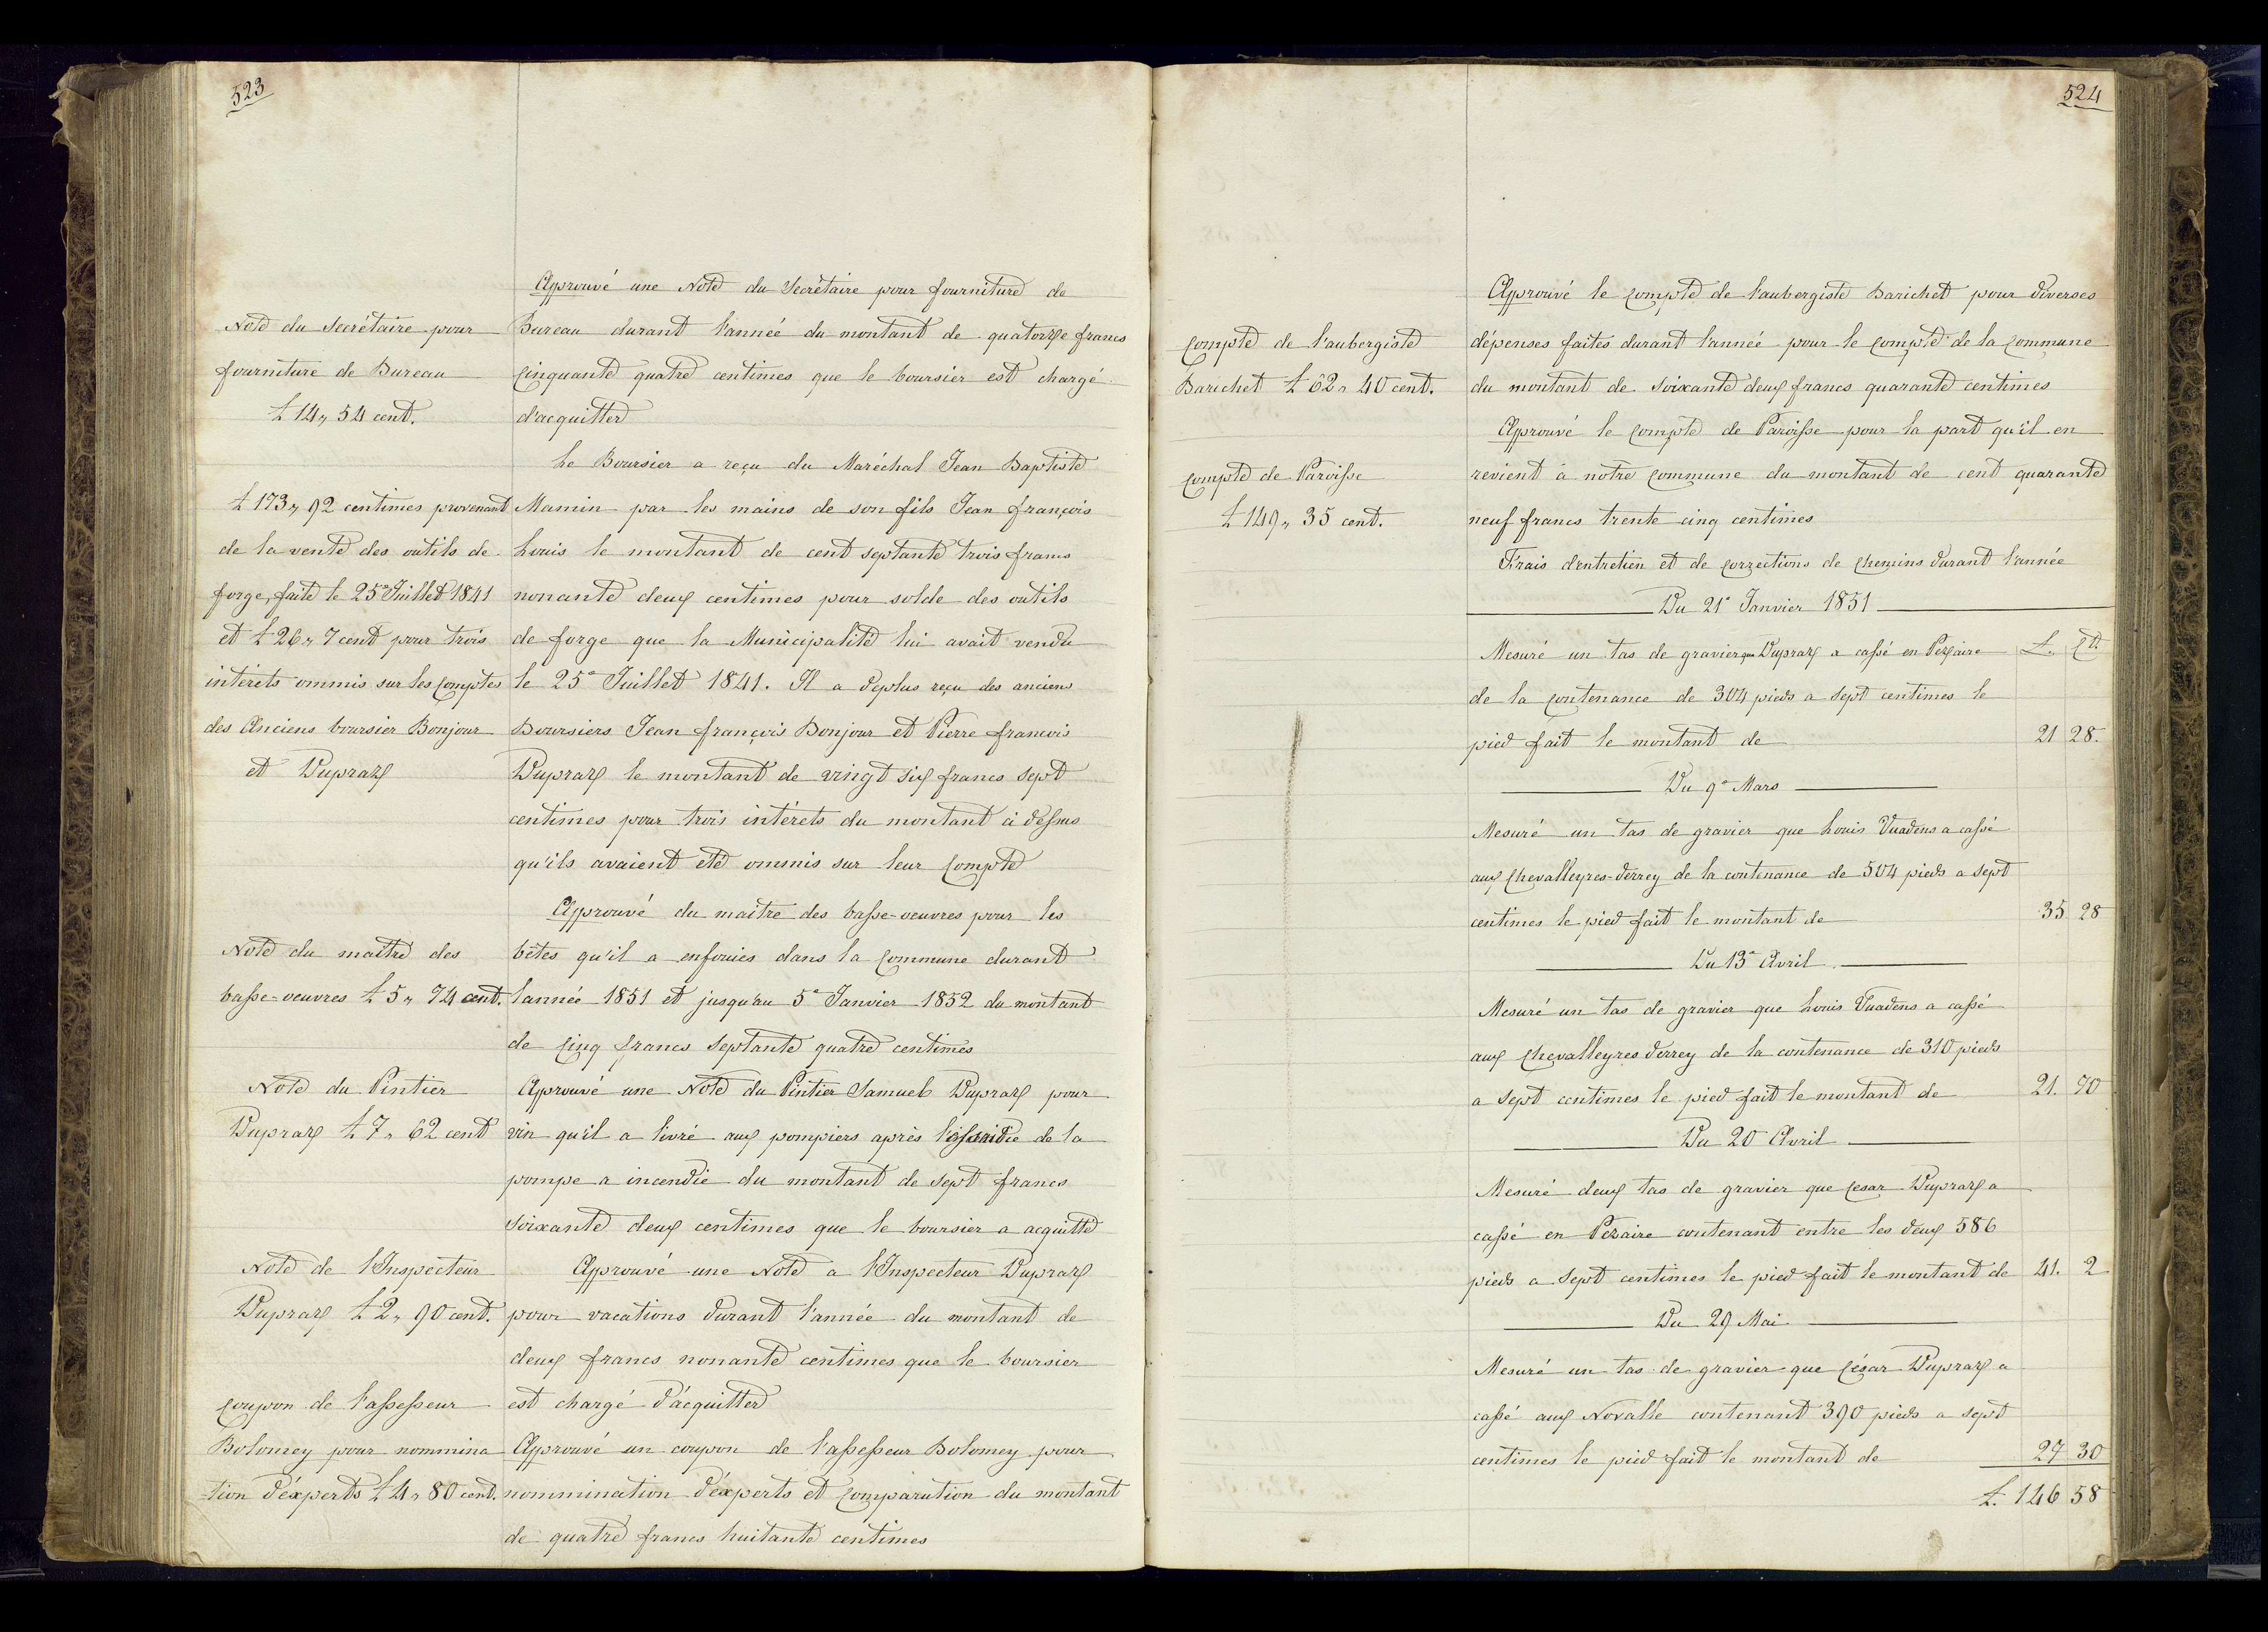 523
Note du Secrétaire pour
fourniture de Bureau
£ 14„ 54 cent.
£ 173„ 92 centimes provenant
de la vente des outils de
forge, faite le 25e Juillet 1841
et £ 26„ 7 cent pour trois
intérets ommis sur les Comptes
des Anciens boursier Bonjour
et Dupraz
Note du maître des
basse-oeuvres £ 5„ 74 cent.
Note du Pintier
Dupraz £ 7„ 62 cent
Note de l'Inspecteur
Dupraz £ 2„ 90 cent.
Coupon de l'assesseur
Bolomey pour nommina
-tion d'éxperts £ 4„ 80 cent.
Approuvé une Note du Secrétaire pour fourniture de
Bureau durant l'année du montant de quatorze francs
Cinquante quatre centimes que le boursier est chargé
d'acquitter
Le Boursier a reçu du Maréchal Jean Baptiste
Mamin par les mains de son fils Jean françois
Louis le montant de cent septante trois francs
nonante deux centimes pour solde des outils
de forge que la Municipalité lui avait vendu
le 25e Juillet 1841. Il a deplus reçu des anciens
Boursiers Jean françois Bonjour et Pierre francois
Dupraz le montant de vingt six francs sept
centimes pour trois intérets du montant ci dessus
qu'ils avaient été ommis sur leur Compte
Approuvé du maitre des basse-oeuvres pour les
bêtes qu'il a enfouies dans la Commune durant
l'année 1851 et jusqu'au 5e Janvier 1852 du montant
de Cinq francs Septante quatre centimes
Approuvé une Note du Pintier Samuel Dupraz pour
vin qu'il a livré aux pompiers après de la
pompe a incendie du montant de sept francs
Soixante deux centimes que le boursier a acquitté
Approuvé une Note a l'Inspecteur Dupraz
pour vacations durant l'année du montant de
deux francs nonante centimes que le boursier
est chargé d'acquitter
Approuvé un coupon de l'assesseur Bolomey pour
nommination d'éxperts et Comparution du montant
de quatre francs huitante centimes
524
Compte de l'aubergiste
Barichet £ 62„ 40 cent.
Compte de Paroisse
£ 149„ 35 cent.
Approuvé le Compte de l'aubergiste Barichet pour diverses
dépenses faites durant l'année pour le Compte de la Commune
du montant de Soixante deux francs quarante centimes
Approuvé le Compte de Paroisse pour la part qu'il en
revient à notre Commune du montant de cent quarante
neuf francs trente cinq centimes
Frais d'entretien et de Corrections de Chemins durant l'année
Du 21e Janvier 1851
Mesuré un tas de gravier que Dupraz a cassé en Pezaire £. Ct.
de la Contenance de 304 pieds a sept centimes le
pied fait le montant de 21 28.
Du 9e Mars
Mesuré un tas de gravier que Louis Vuadens a cassé
aux Chevalleyres-derrey de la contenance de 504 pieds a sept
centimes le pied fait le montant de 35 28
Du 13e Avril
Mesuré un tas de gravier que Louis Vuadens a cassé
aux Chevalleyres derrey de la contenance de 310 pieds
a sept centimes le pied fait le montant de 21. 70
Du 20 Avril
Mesuré deux tas de gravier que Cesar Dupraz a
cassé en Pezaire contenant entre les deux 586
pieds a sept centimes le pied fait le montant de 41. 2
Du 29 Mai
Mesuré un tas de gravier que César Dupraz a
cassé aux Novalle contenant 390 pieds a sept
centimes le pied fait le montant de 27 30
£. 146 58